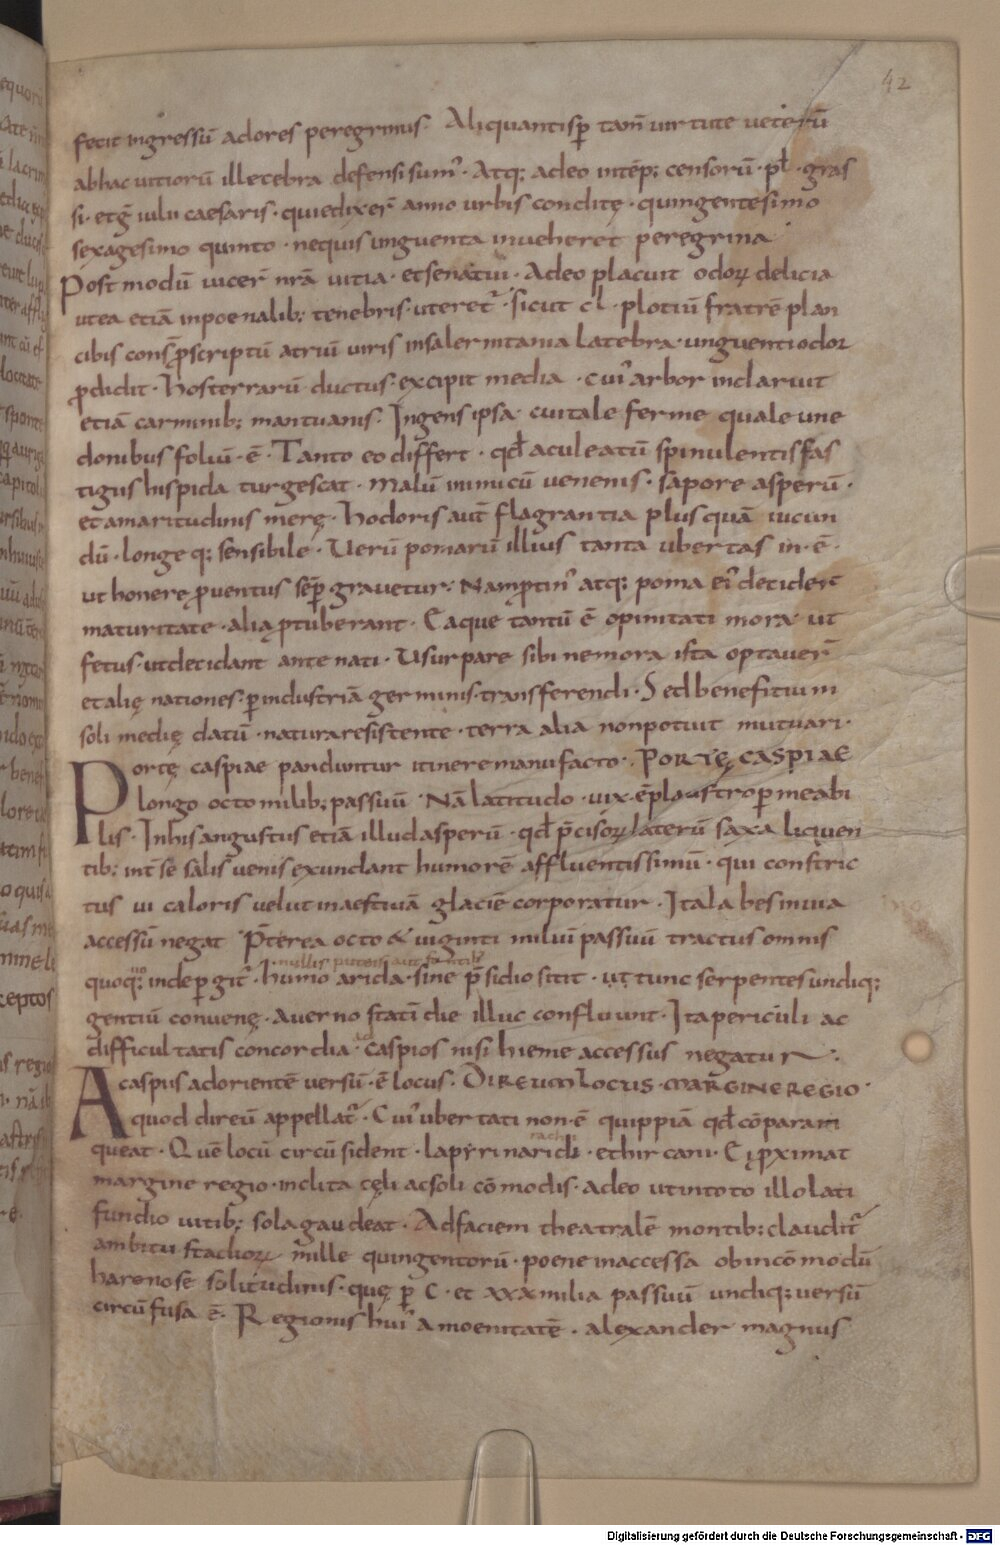 42
fecit ingressū adores peregrinus. Aliquantisp̄ tam̄ virtute veterū
abhac vitiorū illecebra defensi sum᾽. Atq; adeo intēp; censorū · pł · gras
si · etḡ iulii caesaris · quiedixer̄ anno urbis conditę · quingentesimo
sexagesimo quinto · nequis unguenta inveheret peregrina
Post modū vicer̄ nrā vitia · etsenatui · Adeo placuit odoꝝ delicia
utea etiā inpoenalib; tenebris · uteret᾽ · sicut cl · plotiū fratrē plan
cibis cons̄ p̄scriptū atriū viris insalernitania latebra · unguentiodor
ꝓdidit · hosterrarū ductus excipit media · cui᾽ arbor inclaruit
etiā carminib; mantuanis · Ingens ipsa · cuitale ferme quale une
donibus foliū · ē · Tanto eo differt · qđ aculeatū spinulentis fas
tigiis hispida turgescat · malū inimicū venenis · sapore asperū ·
etamaritudinis merę · hodoris aut̄ flagrantia plusquā iucun
dū · longe q; sensibile · Verū pomarū illius tanta ubertas in · ē ·
ut honere ꝓventus sēp̄ gravetur; Namꝓtin᾽ atq; poma ei᾽ decider̄
maturitate · alia ꝓtuberant · Eaque tantū ē opinitati mora · ut
fetus · utdecidant ante nati · Usurpare sibi nemora ista optaver̄
etalię nationes · ꝑindustriā germinis · transferendi · Sed benefitium
soli medię datū · naturaresistente · terra alia nonpotuit mutuari ·
Portę caspiae panduntur itineremanufacto · PORTĘ CASPIAE
longo octo milib; passuū · Nā latitudo · vix · ē plaustro ꝑmeabi
lis · Inhis angustiis etiā illud asperū · qđ p̄cisoꝝ laterū saxa liquen
tib; int̄ se salis venis exundant humorē affluentissimū · qui constric
tus vi caloris velut inaestivā glaciē corporatur · Ita labes invia
accessū negat P̄terea octo & viginti miliū passuū tractus omnis
nullis puteis aut fontib;
quoq; inde ꝑgit᾽ · humo arida · sine p̄sidio sitit · ut tunc serpentes undiq;
gentiū convenę · averno statī die illuc confluunt · Itapericuli ac
difficultatis concordia · caspios nisi hieme accessus negatur
A caspiis adorientē versū · ē locus · DIREUM LOCUS · MARGINE REGIO ·
quod direū appellat᾽ · Cui᾽ ubertati non · ē quippiā qđ cōparari
queat · Quē locū circū sident · lapyri naricli · ethircani · Ei ꝓximat
margine regio · inclita cęli acsoli cōmodis · adeo utintoto illo lati
fundio vitib; sola gaudeat · Adfaciem theatralē montib; claudit᾽
ambitu stadioꝝ mille quingentorū · poene inaccessa obincōmodū
harenose solitudinis · quę ꝑ C · et xxx milia passuū undiq; versū
circū fusa ē · Regionis hui᾽ amoenitatē · alexander magnus
Digitalisierung gefördert durch die Deutsche Forschungsgemeinschaft - DFG